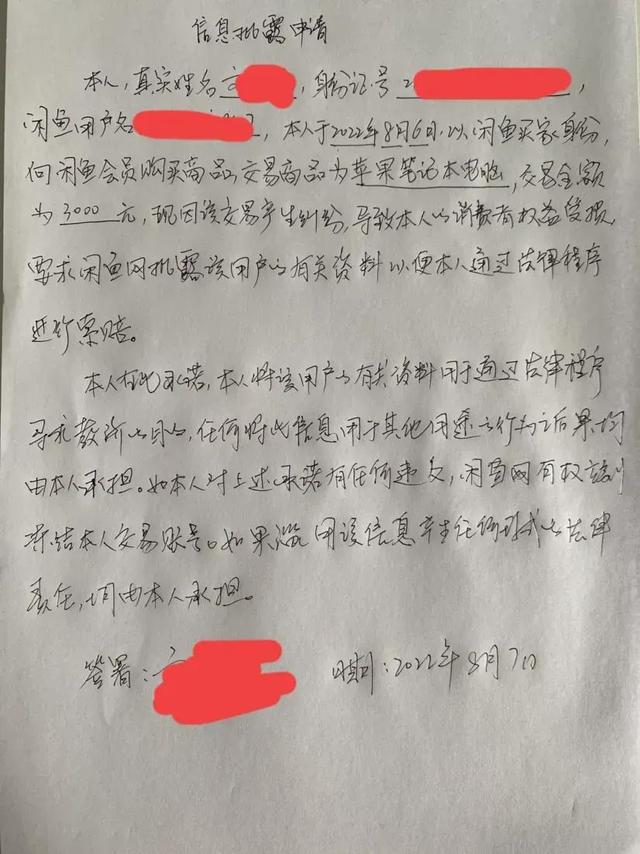 信息披露申请
本人,真实姓名,身份证号,
闲鱼用户名,本人于2022年8月6日,以闲鱼买家身份,
向闲鱼会员购买商品,交易商品为苹果笔记本电脑,交易金额
为3000元,现因该交易产生纠纷,导致本人的消费者权益受损,
要求闲鱼网披露该用户的有关资料以便本人通过法律程序
进行索赔。
本人在此承诺,本人将该用户的有关资料用于通过法律程序
寻求救济的目的,任何将此信息用于其他用途之行为之后果均
由本人承担。如本人对上述承诺有任何违反,闲鱼网有权立刻
冻结本人交易账号。如果滥用该信息产生任何形式的法律
责任,均由本人承担。
签署: 日期:2022年8月7日